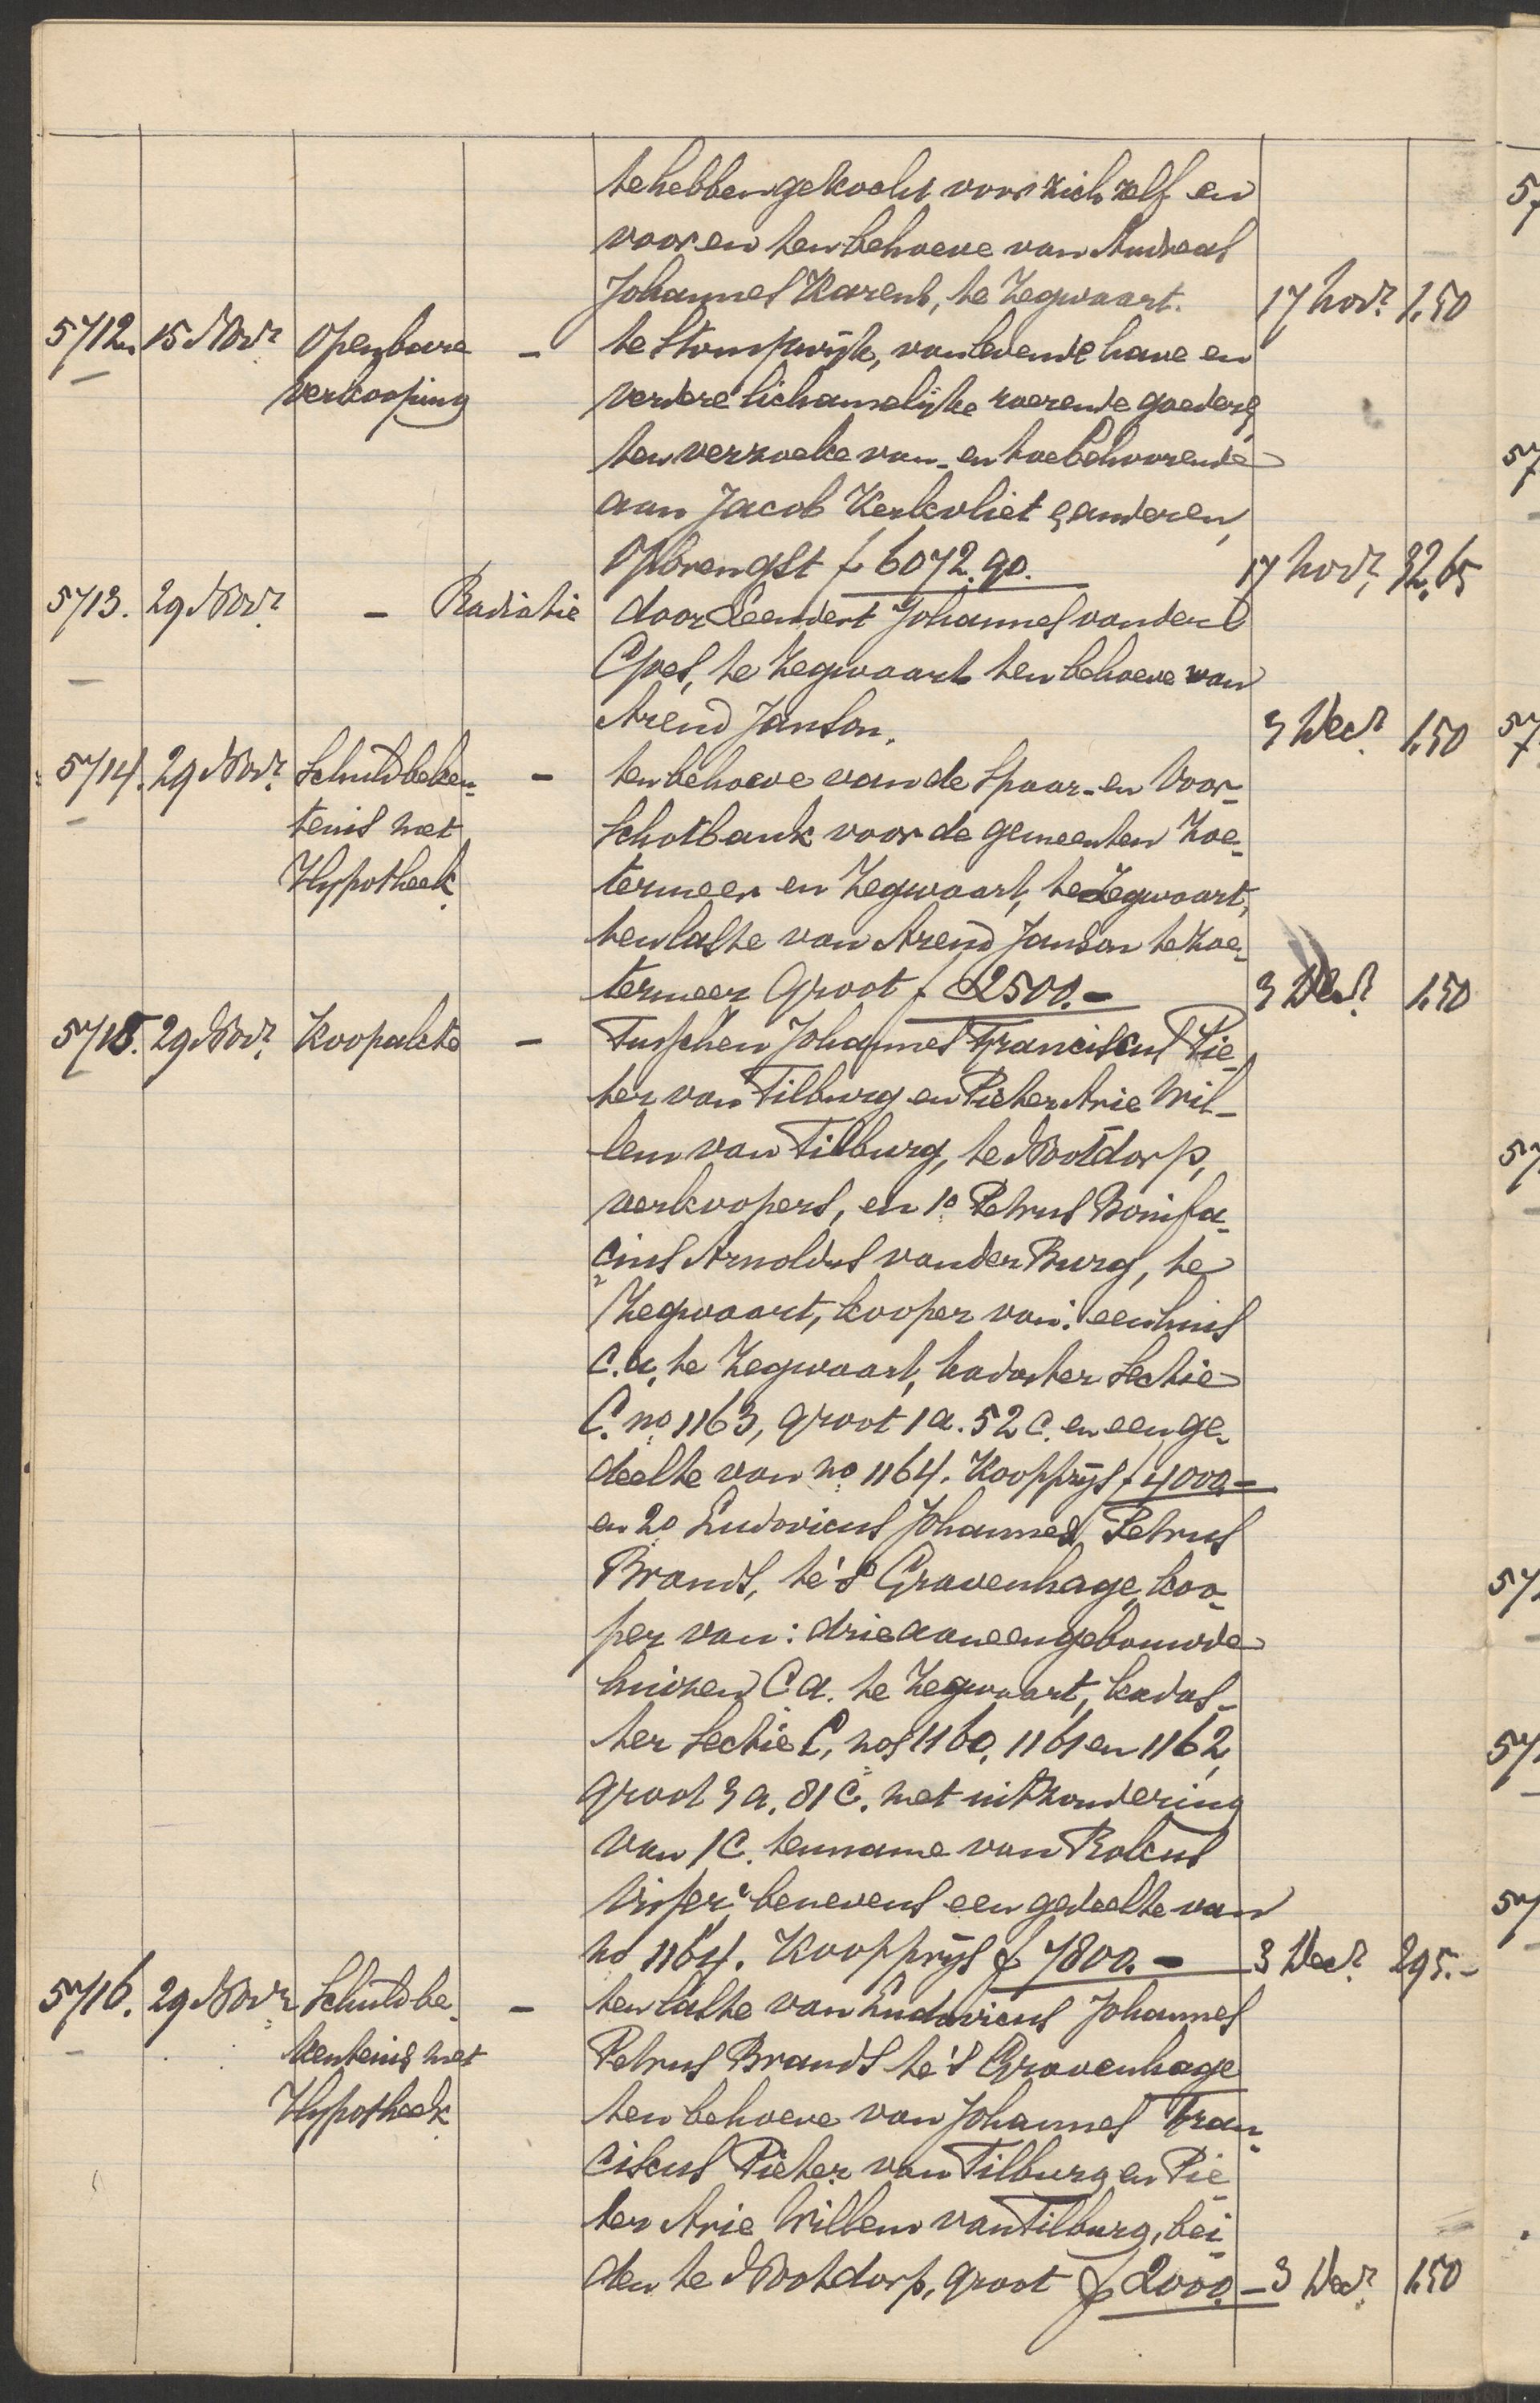 te hebben gekocht voor zich zelf en
voor en ten behoeve van Andreas
Johannes Karens, te Zegwaart. 17 Novr. 1,50
5712 15 Novr. Openbare - te Stompwijk, van levende have en
verkooping verdere lichamelijke roerende goederen,
ten verzoeke van- en toebehoorende
aan Jacob Kerkvliet & anderen,
Opbrengst f 6072.90. 17 Novr. 32,65
5713. 29 Novr. - Radiatie door Leendert Johannes van der
Spes, te Zegwaart ten behoeve van
Arend Janson. 3 Decr. 1,50
5714. 29 Novr. Schuldbeken- - ten behoeve van de Spaar- en Voor-
tenis met schotbank voor de gemeenten Zoe-
Hypotheek. termeer en Zegwaart, te Zegwaart,
ten laste van Arend Janson te Zoe-
termeer Groot f 2500.- 3 Decr. 1,50
5715. 29 Novr. Koopakte - Tusschen Johannes Franciscus Pie-
ter van Tilburg en Pieter Arie Wil-
lem van Tilburg, te Nootdorp,
verkoopers, en 1o Petrus Bonifa-
cius Arnoldus van der Burg, te
Zegwaart, kooper van: een huis
c.a. te Zegwaart, kadaster Sectie
C. no 1163, groot 1 a. 52 c. en een ge-
deelte van no 1164. Koopprijs f 4000.-
en 2o Ludovicus Johannes Petrus
Brands, te 's Gravenhage, koo-
per van: drie aaneengebouwde
huizen C a. te Zegwaart, kadas-
ter Sectie C, nos 1160, 1161 en 1162,
groot 3 a. 81 c. met uitzondering
van 1 C. ten name van Rokus
benevens een gedeelte van
no 1164. Koopprijs f 7800.- 3 Decr. 295.-
5716. 29 Novr. Schuldbe- - ten laste van Ludovicus Johannes
kentenis met Petrus Brands te 's Gravenhage
Hypotheek. ten behoeve van Johannes Fran-
ciscus Pieter van Tilburg en Pie-
ter Arie Willem van Tilburg, bei-
den te Nootdorp, groot f 2000.- 3 Decr. 1,50